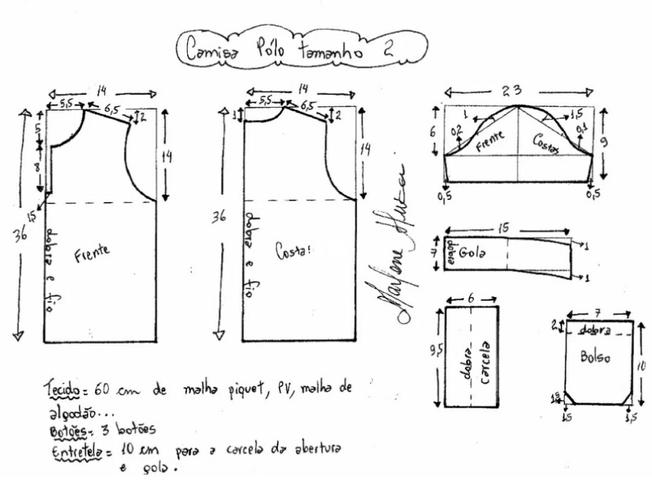 Camisa Pólo tamanho 2
14
5,5 6,5 2
5
8
1,5
14
36
Frente
dobra e fio
14
5,5 6,5 2
1
14
36
Costas
dobra e fio
Marlene Mukai
23
1 1,5
6 0,2 0,1 9
Frente Costas
0,5 0,5
15
7 dobra Gola 1
1
6
9,5 dobra carcela
7
2 dobra
Bolso 10
1,5
1,5 1,5
Tecido = 60 cm de malha piquet, PV, malha de
algodão...
Botões = 3 botões
Entretela = 10 cm para a carcela da abertura
e gola.